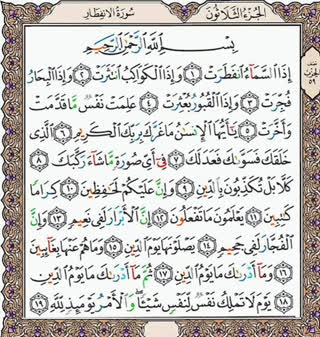 الجزء الثلاثون
سورة الانفطار
بِسْمِ ٱللَّهِ ٱلرَّحْمَٰنِ ٱلرَّحِيمِ
إِذَا ٱلسَّمَآءُ ٱنفَطَرَتْ ١ وَإِذَا ٱلْكَوَاكِبُ ٱنتَثَرَتْ ٢ وَإِذَا ٱلْبِحَارُ
فُجِّرَتْ ٣ وَإِذَا ٱلْقُبُورُ بُعْثِرَتْ ٤ عَلِمَتْ نَفْسٌ مَّا قَدَّمَتْ
وَأَخَّرَتْ ٥ يَٰٓأَيُّهَا ٱلْإِنسَٰنُ مَا غَرَّكَ بِرَبِّكَ ٱلْكَرِيمِ ٦ ٱلَّذِى
خَلَقَكَ فَسَوَّىٰكَ فَعَدَلَكَ ٧ فِىٓ أَىِّ صُورَةٍ مَّا شَآءَ رَكَّبَكَ ٨
كَلَّا بَلْ تُكَذِّبُونَ بِٱلدِّينِ ٩ وَإِنَّ عَلَيْكُمْ لَحَٰفِظِينَ ١٠ كِرَامًا
كَٰتِبِينَ ١١ يَعْلَمُونَ مَا تَفْعَلُونَ ١٢ إِنَّ ٱلْأَبْرَارَ لَفِى نَعِيمٍ ١٣ وَإِنَّ
ٱلْفُجَّارَ لَفِى جَحِيمٍ ١٤ يَصْلَوْنَهَا يَوْمَ ٱلدِّينِ ١٥ وَمَا هُمْ عَنْهَا بِغَآئِبِينَ
١٦ وَمَآ أَدْرَىٰكَ مَا يَوْمُ ٱلدِّينِ ١٧ ثُمَّ مَآ أَدْرَىٰكَ مَا يَوْمُ ٱلدِّينِ
١٨ يَوْمَ لَا تَمْلِكُ نَفْسٌ لِّنَفْسٍ شَيْـًٔا ۖ وَٱلْأَمْرُ يَوْمَئِذٍ لِّلَّهِ ١٩